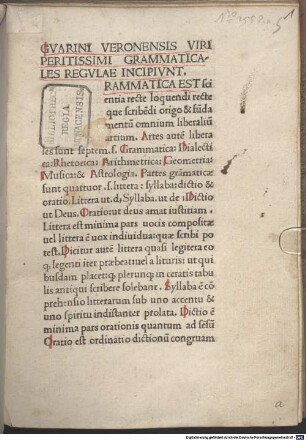 GVARINI VERONENSIS VIRI
PERITISSIMI GRAMMATICA-
LES REGVLAE INCIPIVNT.
RAMMATICA EST sci
entia recte loquendi recte
que scribēdi origo & fūda
mentū omnium liberaliū
artium. Artes autē libera
les sunt septem .s. Grammatica: Dialecti
ca: Rhetorica: Arithmetrica: Geometria:
Musica: & Astrologia. Partes grāmaticæ
sunt quattuor .s. littera: syllaba: dictio &
oratio. Littera ut .d, Syllaba. ut de: Dictio
ut Deus. Oratio ut deus amat iustitiam.
Littera est minima pars uocis compositæ
uel littera ē uox indiuidua quæ scribi po
test. Dicitur autē littera quasi legitera eo
q, legenti iter præbeat uel a lituris: ut qui
busdam placet: q, plerunq; in ceratis tabu
lis antiqui scribere solebant. Syllaba ē cō
prehensio litterarum sub uno accentu &
uno spiritu indistanter prolata. Dictio ē
minima pars orationis quantum ad sēsū
Oratio est ordinatio dictionū congruam
BIBLIOTHECA
REGIA
MONACENSIS
a